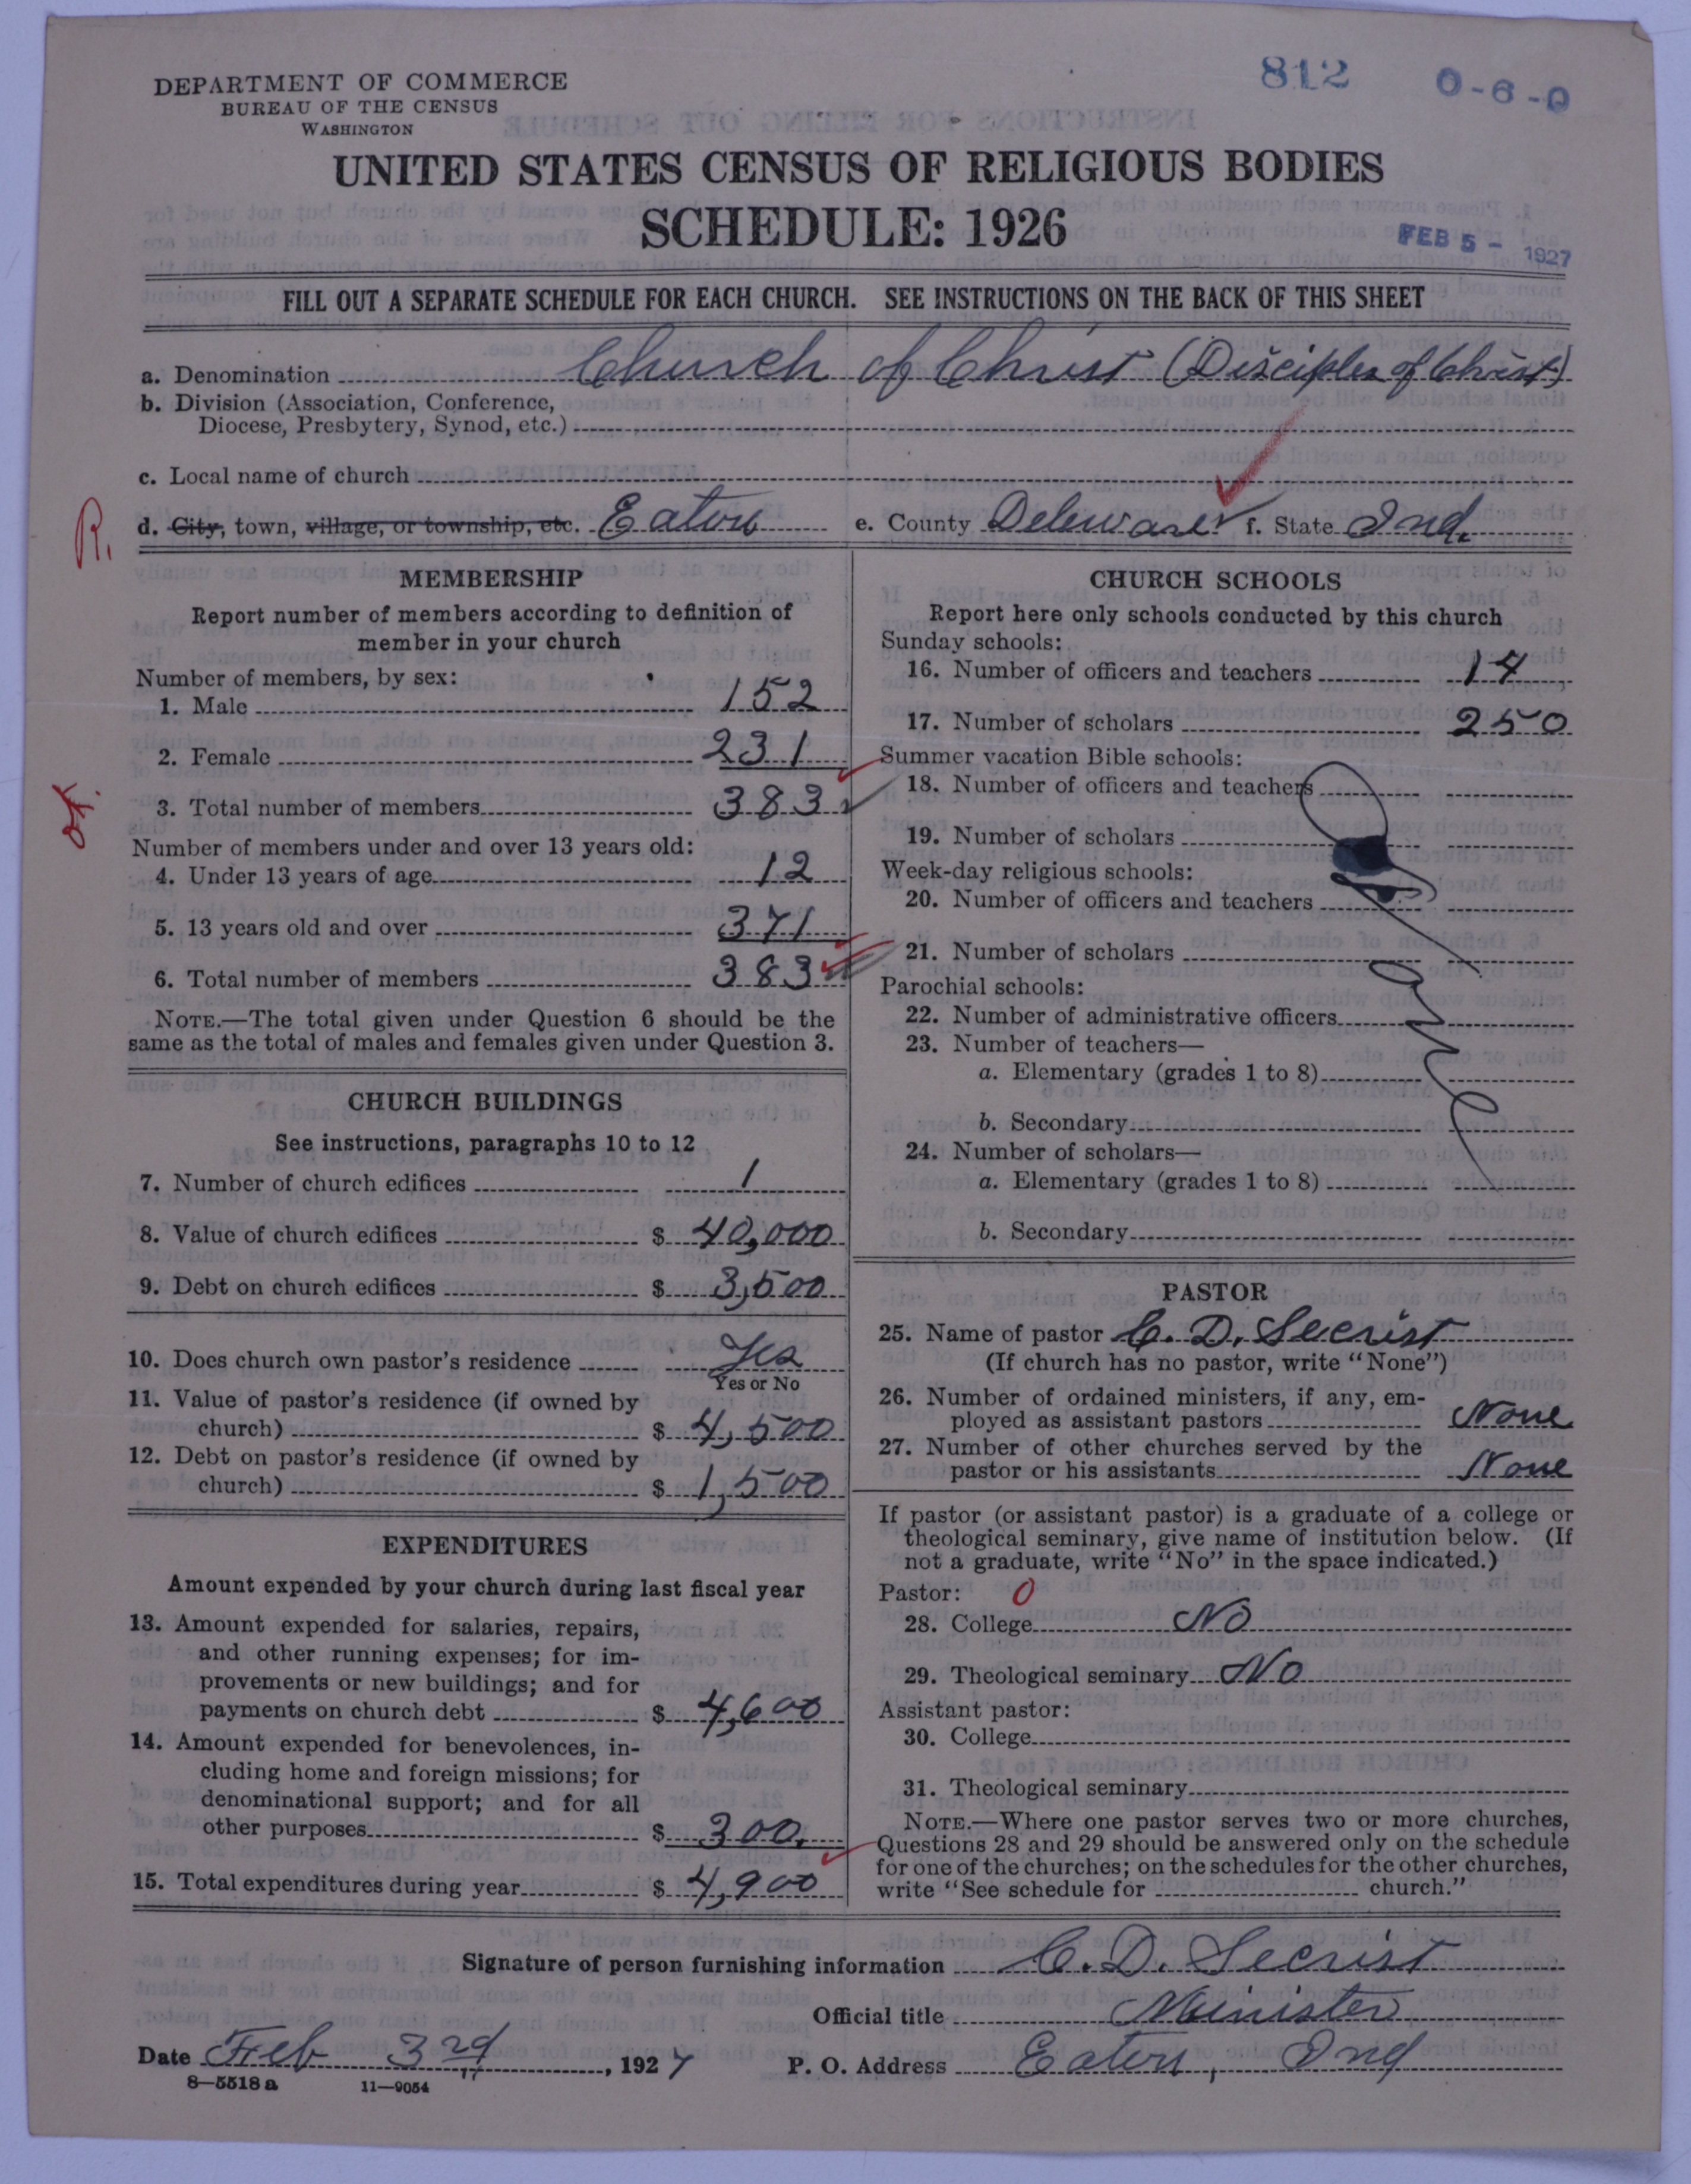 812 0-6-0
DEPARTMENT OF COMMERCE
BUREAU OF THE CENSUS
WASHINGTON
UNITED STATES CENSUS OF RELIGIOUS BODIES
SCHEDULE: 1926
FEB 5 - 1927
FILL OUT A SEPARATE SCHEDULE FOR EACH CHURCH. SEE INSTRUCTIONS ON THE BACK OF THIS SHEET
a. Denomination Church of Christ (Disciples of Christ)
b. Division (Association, Conference,
Diocese, Presbytery, Synod, etc.)
c. Local name of church
R.
d. City, town, village, or township, etc. Eaton e. County Deleware f. State Ind.
MEMBERSHIP
Report number of members according to definition of
member in your church
Number of members, by sex:
1. Male 152
2. Female 231
3. Total number of members 383
ok.
Number of members under and over 13 years old:
4. Under 13 years of age 12
5. 13 years old and over 371
6. Total number of members 383
NOTE.—The total given under Question 6 should be the
same as the total of males and females given under Question 3.
CHURCH BUILDINGS
See instructions, paragraphs 10 to 12
7. Number of church edifices 1
8. Value of church edifices $ 40,000
9. Debt on church edifices $ 3,500
10. Does church own pastor's residence Yes
Yes or No
11. Value of pastor's residence (if owned by
church) $ 4,500
12. Debt on pastor's residence (if owned by
church) $ 1,500
EXPENDITURES
Amount expended by your church during last fiscal year
13. Amount expended for salaries, repairs,
and other running expenses; for im-
provements or new buildings; and for
payments on church debt $ 4,600
14. Amount expended for benevolences, in-
cluding home and foreign missions; for
denominational support; and for all
other purposes $ 300.
15. Total expenditures during year $ 4,900
CHURCH SCHOOLS
Report here only schools conducted by this church
Sunday schools:
16. Number of officers and teachers 14
17. Number of scholars 250
Summer vacation Bible schools:
18. Number of officers and teachers
19. Number of scholars
Week-day religious schools:
20. Number of officers and teachers
21. Number of scholars
Parochial schools:
22. Number of administrative officers
23. Number of teachers—
a. Elementary (grades 1 to 8)
b. Secondary
24. Number of scholars—
a. Elementary (grades 1 to 8)
b. Secondary
PASTOR
25. Name of pastor C. D. Secrist
(If church has no pastor, write "None")
26. Number of ordained ministers, if any, em-
ployed as assistant pastors None
27. Number of other churches served by the
pastor or his assistants None
If pastor (or assistant pastor) is a graduate of a college or
theological seminary, give name of institution below. (If
not a graduate, write "No" in the space indicated.)
Pastor: 0
28. College No
29. Theological seminary No
Assistant pastor:
30. College
31. Theological seminary
NOTE.—Where one pastor serves two or more churches,
Questions 28 and 29 should be answered only on the schedule
for one of the churches; on the schedules for the other churches,
write "See schedule for church."
Signature of person furnishing information C. D. Secrist
Official title Minister
Date Feb 3rd, 1927 P. O. Address Eaton, Ind
8—5518 a 11—9054